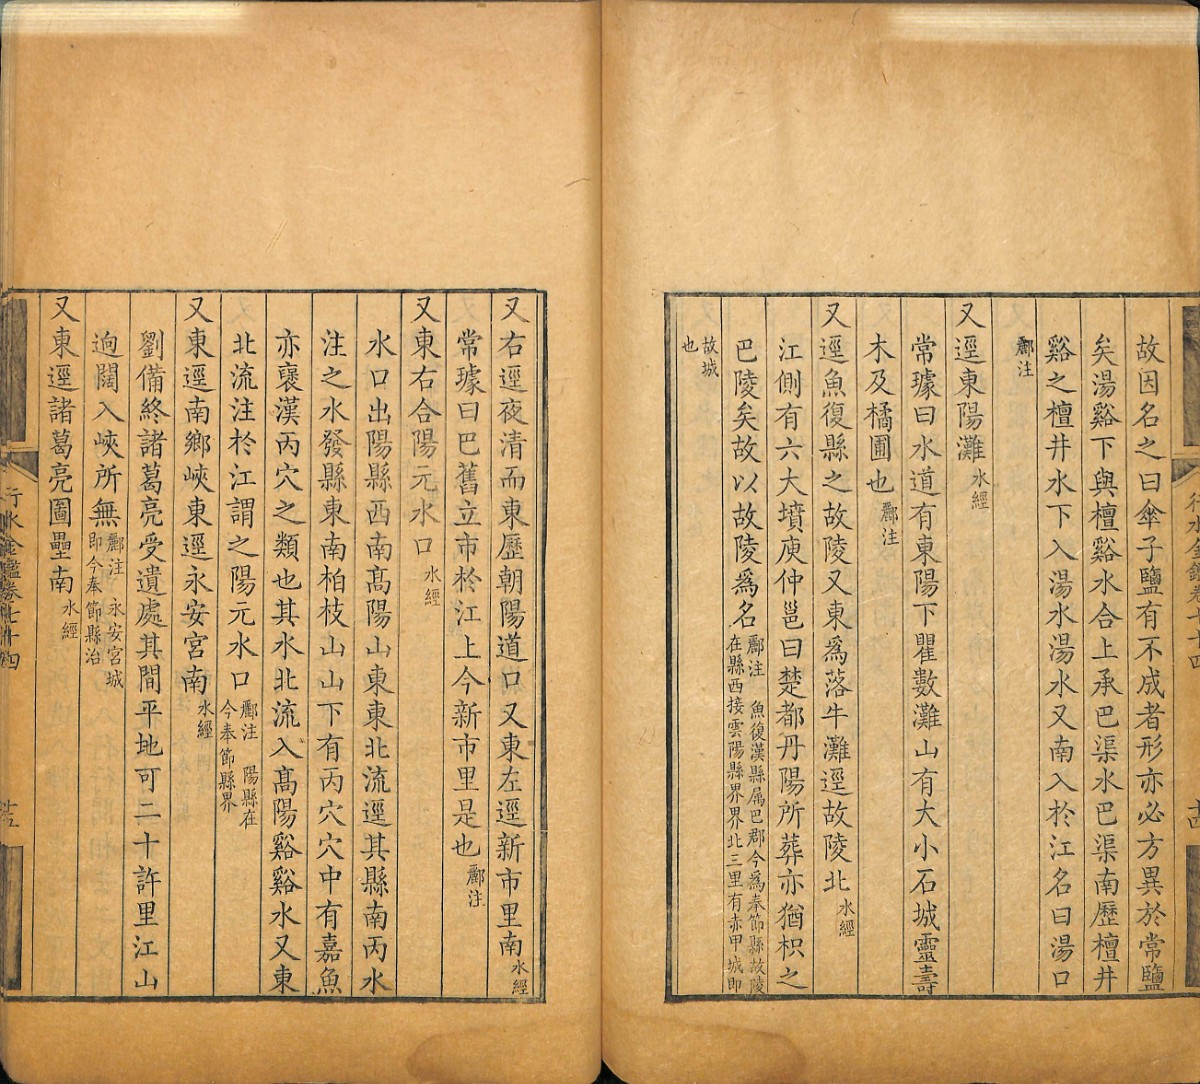 故因名之曰傘子鹽有不成者形亦必方異於常鹽
矣湯谿下與檀谿水合上承巴渠水巴渠南歷檀井
谿之檀井水下入湯水湯水又南入於江名曰湯口
酈注
又逕東陽灘水經
常璩曰水道有東陽下瞿數灘山有大小石城靈壽
木及橘圃也酈注
又逕魚復縣之故陵又東爲落牛灘逕故陵北水經
江側有六大墳庾仲邕曰楚都丹陽所葬亦猶枳之
巴陵矣故以故陵爲名酈注 魚復漢縣属巴郡今爲奉節縣故陵在縣西接雲陽縣界界北三里有赤甲城即
故城也
又右逕夜清而東歷朝陽道口又東左逕新市里南水經
常璩曰巴舊立市於江上今新市里是也酈注
又東右合陽元水口水經
水口出陽縣西南高陽山東東北流逕其縣南丙水
注之水發縣東南柏枝山山下有丙穴穴中有嘉魚
亦褒漢丙穴之類也其水北流入高陽谿谿水又東
北流注於江謂之陽元水口酈注 陽縣在今奉節縣界
又東逕南鄉峽東逕永安宮南水經
劉備終諸葛亮受遺處其間平地可二十許里江山
逈闊入峽所無酈注 永安宮城即今奉節縣治
又東逕諸葛亮圖壘南水經
行水金鑑卷七十四